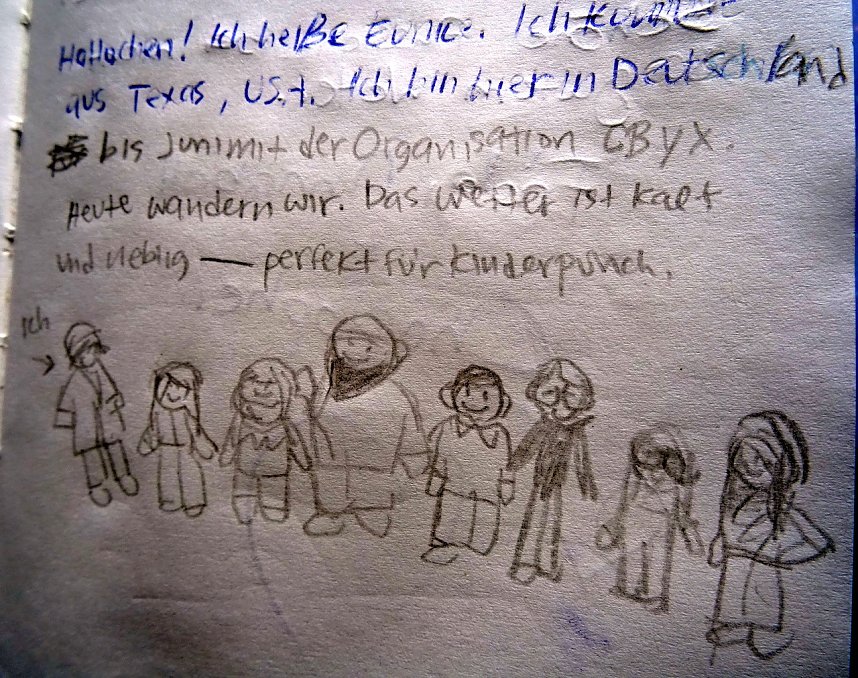 Hallöchen! Ich heiße Eunice. Ich komme
aus Texas, USA. Ich bin hier in Deutschland
bis Juni mit der Organisation CByX.
Heute wandern wir. Das Wetter ist kalt
und neblig — perfekt für Kinderpunsch.
Ich